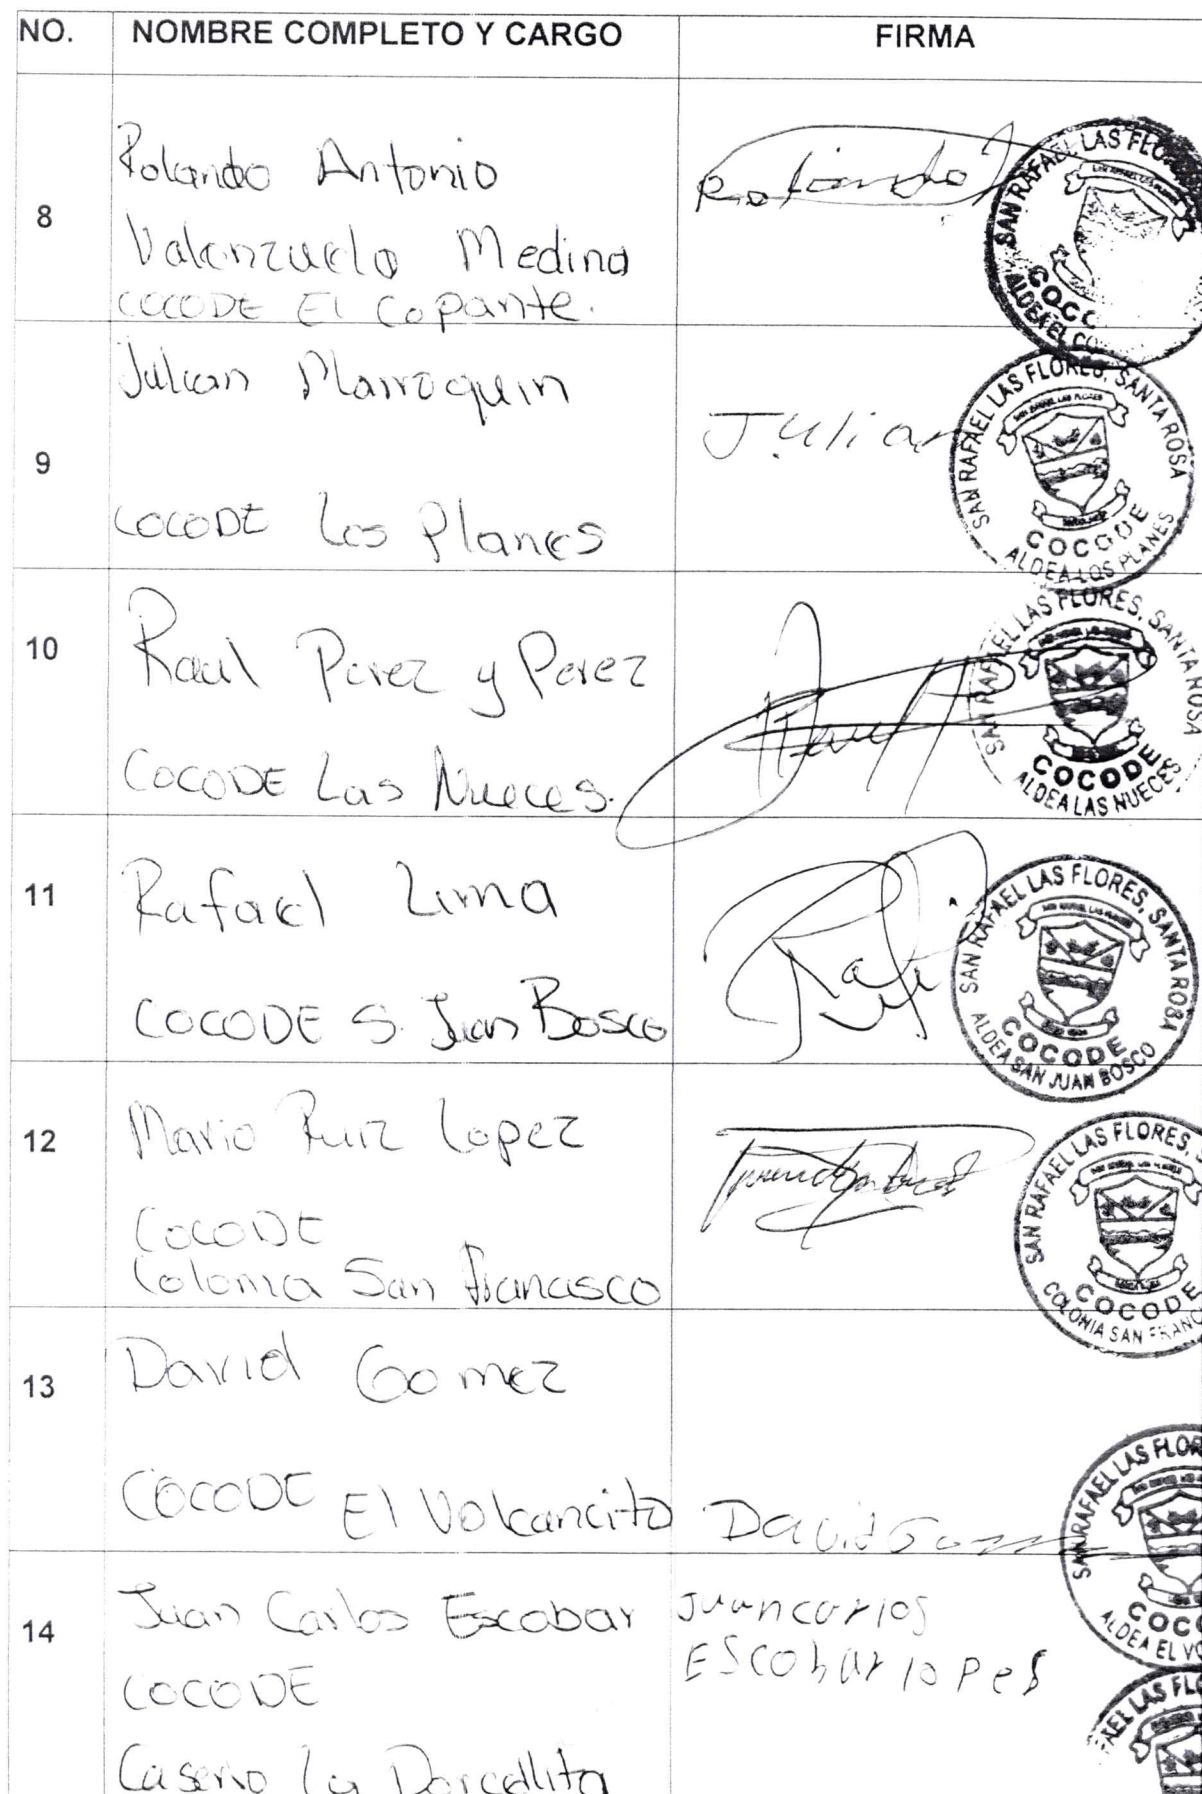 NO. NOMBRE COMPLETO Y CARGO FIRMA
8
Rolando Antonio
Valenzuela Medina
COCODE El Copante.
Rolando
SAN RAFAEL LAS FLO
COCO
ALDEA EL CO
9
Julian Marroquin
COCODE Los Planes
Julian
SAN RAFAEL LAS FLORES, SANTA ROSA
COCODE
ALDEA LOS PLANES
10
Raul Perez y Perez
COCODE Las Nueces.
SAN RAFAEL LAS FLORES, SANTA ROSA
COCODE
ALDEA LAS NUECES
11
Rafael Lima
COCODE S. Juan Bosco
SAN RAFAEL LAS FLORES, SANTA ROSA
COCODE
ALDEA SAN JUAN BOSCO
12
Mario Ruiz Lopez
COCODE
Colonia San Francisco
SAN RAFAEL LAS FLORES, S
COCODE
COLONIA SAN FRANC
13
David Gomez
COCODE El Volcancito
David
SAN RAFAEL LAS FLOR
COCO
ALDEA EL VO
14
Juan Carlos Escobar
COCODE
Caserio La
Juan carlos
EScobar lopes
FAEL LAS FLO